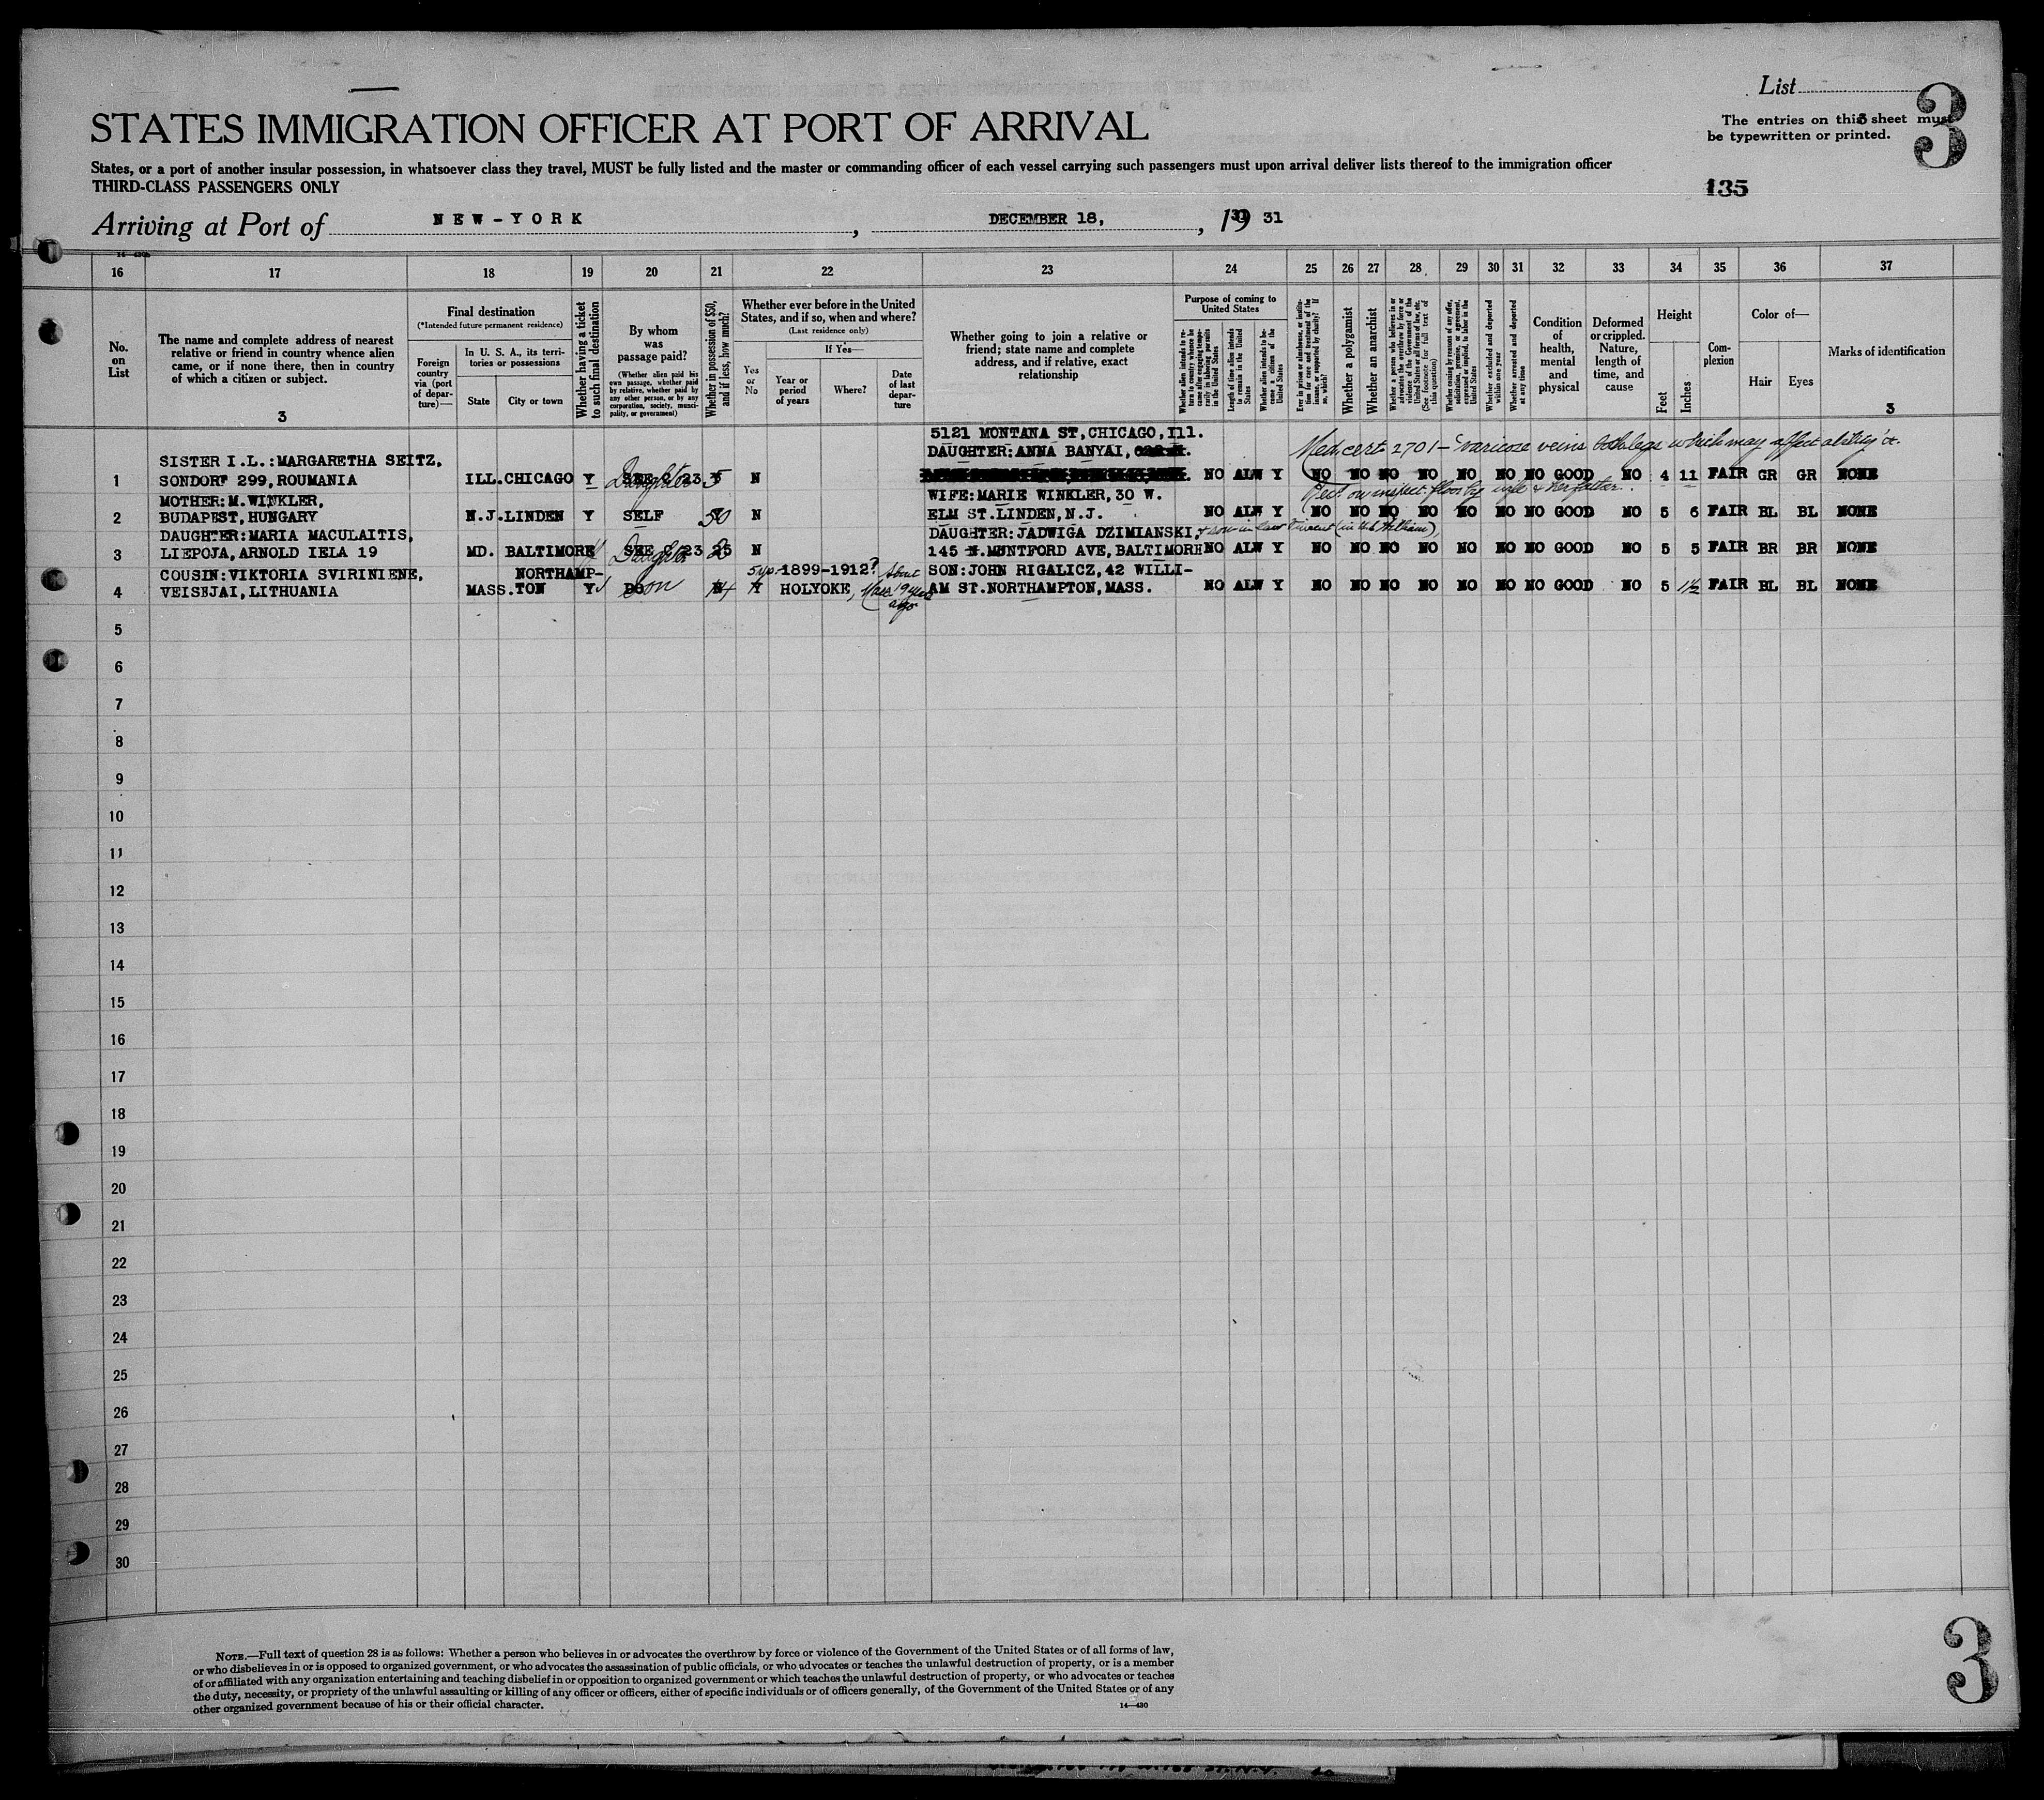 List
3
STATES IMMIGRATION OFFICER AT PORT OF ARRIVAL
The entries on this sheet must
be typewritten or printed.
States, or a port of another insular possession, in whatsoever class they travel, MUST be fully listed and the master or commanding officer of each vessel carrying such passengers must upon arrival deliver lists thereof to the immigration officer
THIRD-CLASS PASSENGERS ONLY
135
Arriving at Port of NEW-YORK, DECEMBER 18, 19 31
16 17 18 19 20 21 22 23 24 25 26 27 28 29 30 31 32 33 34 35 36 37
No. on List
The name and complete address of nearest relative or friend in country whence alien came, or if none there, then in country of which a citizen or subject.
3
Final destination
(*Intended future permanent residence)
Foreign country via (port of departure)—
In U. S. A., its territories or possessions
State
City or town
Whether having a ticket to such final destination
By whom was passage paid?
(Whether alien paid his own passage, whether paid by relative, whether paid by any other person, or by any corporation, society, municipality, or government)
Whether in possession of $50, and if less, how much?
Whether ever before in the United States, and if so, when and where?
(Last residence only)
Yes or No
If Yes—
Year or period of years
Where?
Date of last departure
Whether going to join a relative or friend; state name and complete address, and if relative, exact relationship
Purpose of coming to United States
Whether alien intends to return to country whence he came after engaging temporarily in laboring pursuits in the United States
Length of time alien intends to remain in the United States
Whether alien intends to become a citizen of the United States
Ever in prison or almshouse, or institution for care and treatment of the insane, or supported by charity? If so, which?
Whether a polygamist
Whether an anarchist
Whether a person who believes in or advocates the overthrow by force or violence of the Government of the United States or all forms of law, etc. (See footnote for full text of this question)
Whether coming by reasons of any offer, solicitation, promise, or agreement, expressed or implied, to labor in the United States
Whether excluded and deported within one year
Whether arrested and deported at any time
Condition of health, mental and physical
Deformed or crippled. Nature, length of time, and cause
Height
Feet
Inches
Complexion
Color of—
Hair
Eyes
Marks of identification
3
5121 MONTANA ST, CHICAGO, Ill.
Med. cert 2701 - varicose veins both legs which may affect ability &c.
SISTER I.L.:MARGARETHA SEITZ, DAUGHTER:ANNA BANYAI,
1 SONDORF 299, ROUMANIA ILL. CHICAGO Y Daughter SEE C 23 5 N NO ALW Y NO NO NO NO NO NO NO GOOD NO 4 11 FAIR GR GR NONE
MOTHER:M.WINKLER, WIFE:MARIE WINKLER, 30 W. inspect. floor by wife & her father.
2 BUDAPEST, HUNGARY N.J. LINDEN Y SELF 50 N ELM ST. LINDEN, N.J. NO ALW Y NO NO NO NO NO NO NO GOOD NO 5 6 FAIR BL BL NONE
DAUGHTER:MARIA MACULAITIS, DAUGHTER:JADWIGA DZIMIANSKI, & son in law
3 LIEPOJA, ARNOLD IELA 19 MD. BALTIMORE Daughter SEE C 23 25 N 145 N. MUNTFORD AVE, BALTIMORE NO ALW Y NO NO NO NO NO NO NO GOOD NO 5 5 FAIR BR BR NONE
COUSIN:VIKTORIA SVIRINIENE, NORTHAMP- 5 yrs. 1899-1912? About SON:JOHN RIGALICZ, 42 WILLI-
4 VEISEJAI, LITHUANIA MASS. TON Y DO Son N Y HOLYOKE, Mass 19 years ago AM ST. NORTHAMPTON, MASS. NO ALW Y NO NO NO NO NO NO NO GOOD NO 5 1½ FAIR BL BL NONE
5
6
7
8
9
10
11
12
13
14
15
16
17
18
19
20
21
22
23
24
25
26
27
28
29
30
NOTE.—Full text of question 28 is as follows: Whether a person who believes in or advocates the overthrow by force or violence of the Government of the United States or of all forms of law,
or who disbelieves in or is opposed to organized government, or who advocates the assassination of public officials, or who advocates or teaches the unlawful destruction of property, or is a member
of or affiliated with any organization entertaining and teaching disbelief in or opposition to organized government or which teaches the unlawful destruction of property, or who advocates or teaches
the duty, necessity, or propriety of the unlawful assaulting or killing of any officer or officers, either of specific individuals or of officers generally, of the Government of the United States or of any
other organized government because of his or their official character.
14—430
3